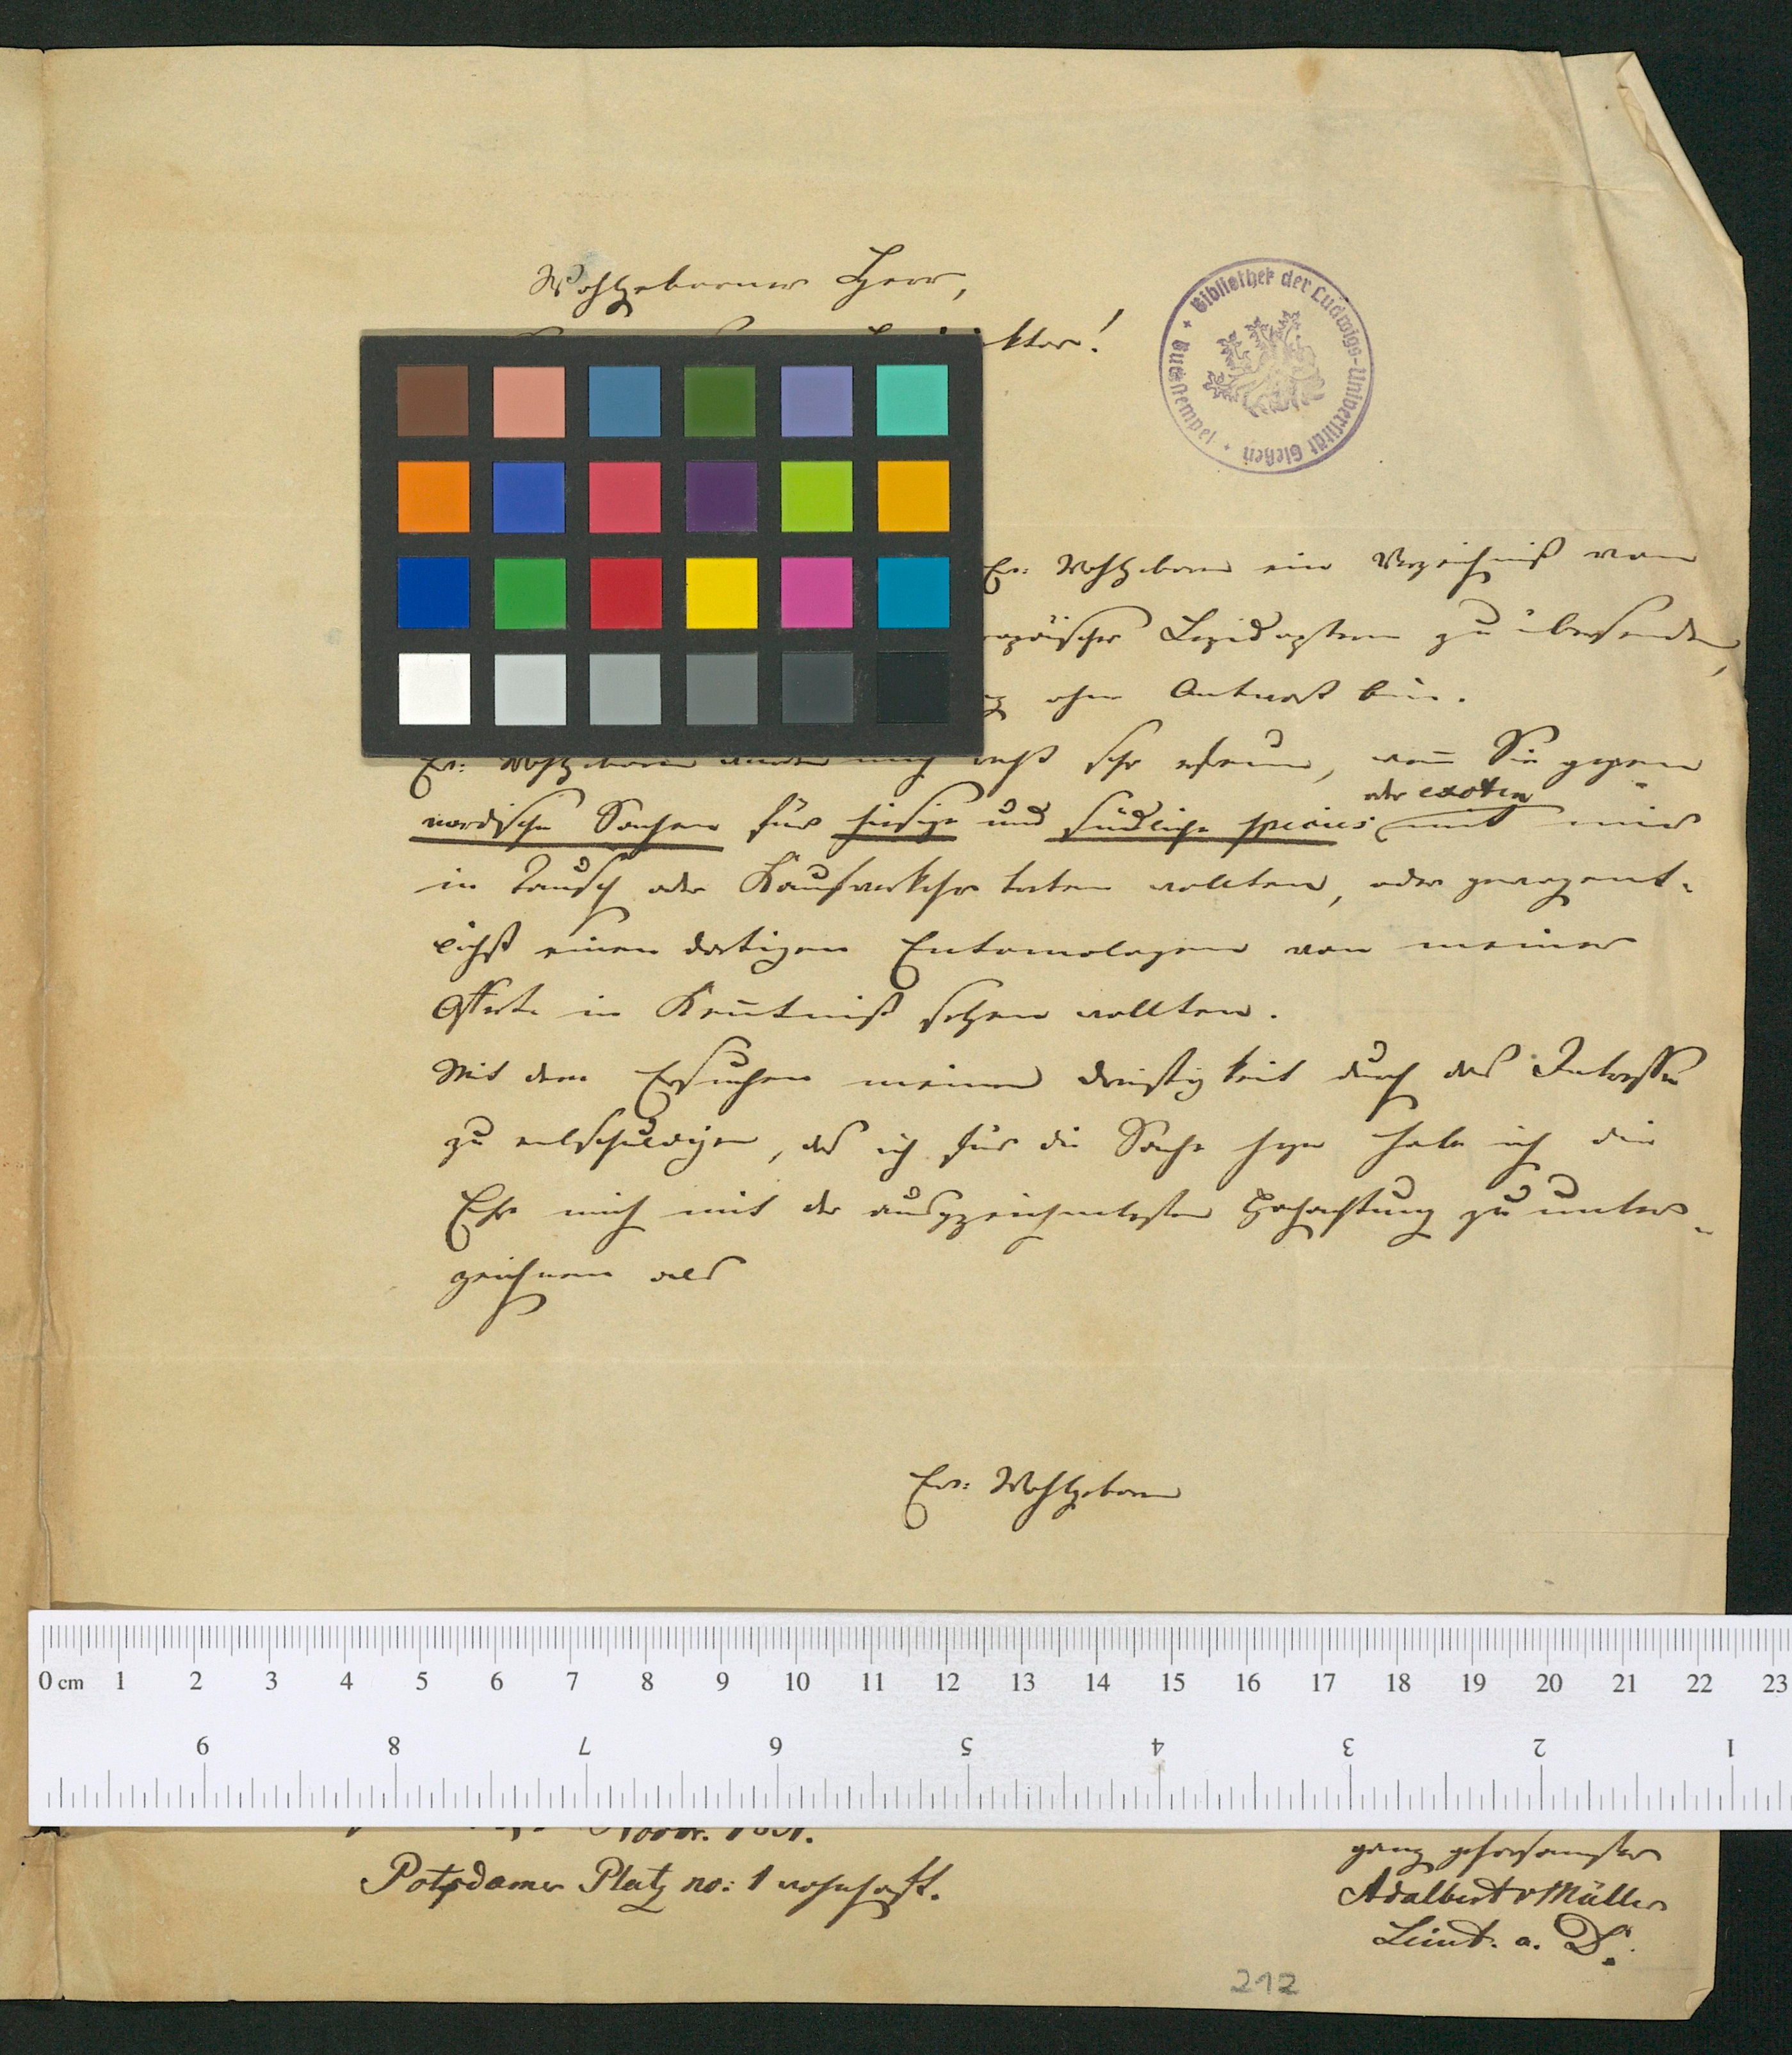 Wohlgeborner Herr,
ktor!
Bibliothek der Ludwigs-Universität Gießen
Buchstempel
Ew: Wohlgeborn ein Verzeichniß von
ropäischer Lepidoptern zu übersenden,
ohne Antwort bin.
Ew: Wohlgeborn würden mich sehr erfreun, wenn Sie gegen
oder exoten
nordische Sachen für hiesige und südliche species mit mir
in Tausch oder Kaufverkehr treten wollten, oder gewogent-
lichst einen dortigen Entomologen von meiner
Offerte in Kenntniß setzen wollten.
Mit dem Ersuchen meine Dreistigkeit durch das Interesse
zu entschuldigen, das ich für die Sache hege habe ich die
Ehre mich mit der ausgezeichnetesten Hochachtung zu unter-
zeichnen als
Ew: Wohlgeborn
0 cm 1 2 3 4 5 6 7 8 9 10 11 12 13 14 15 16 17 18 19 20 21 22 23
9 8 7 6 5 4 3 2 1
ganz gehorsamster
Potsdamer Platz no: 1 wohnhaft.
Adalbert v Müller
Lieut. a. D.
212